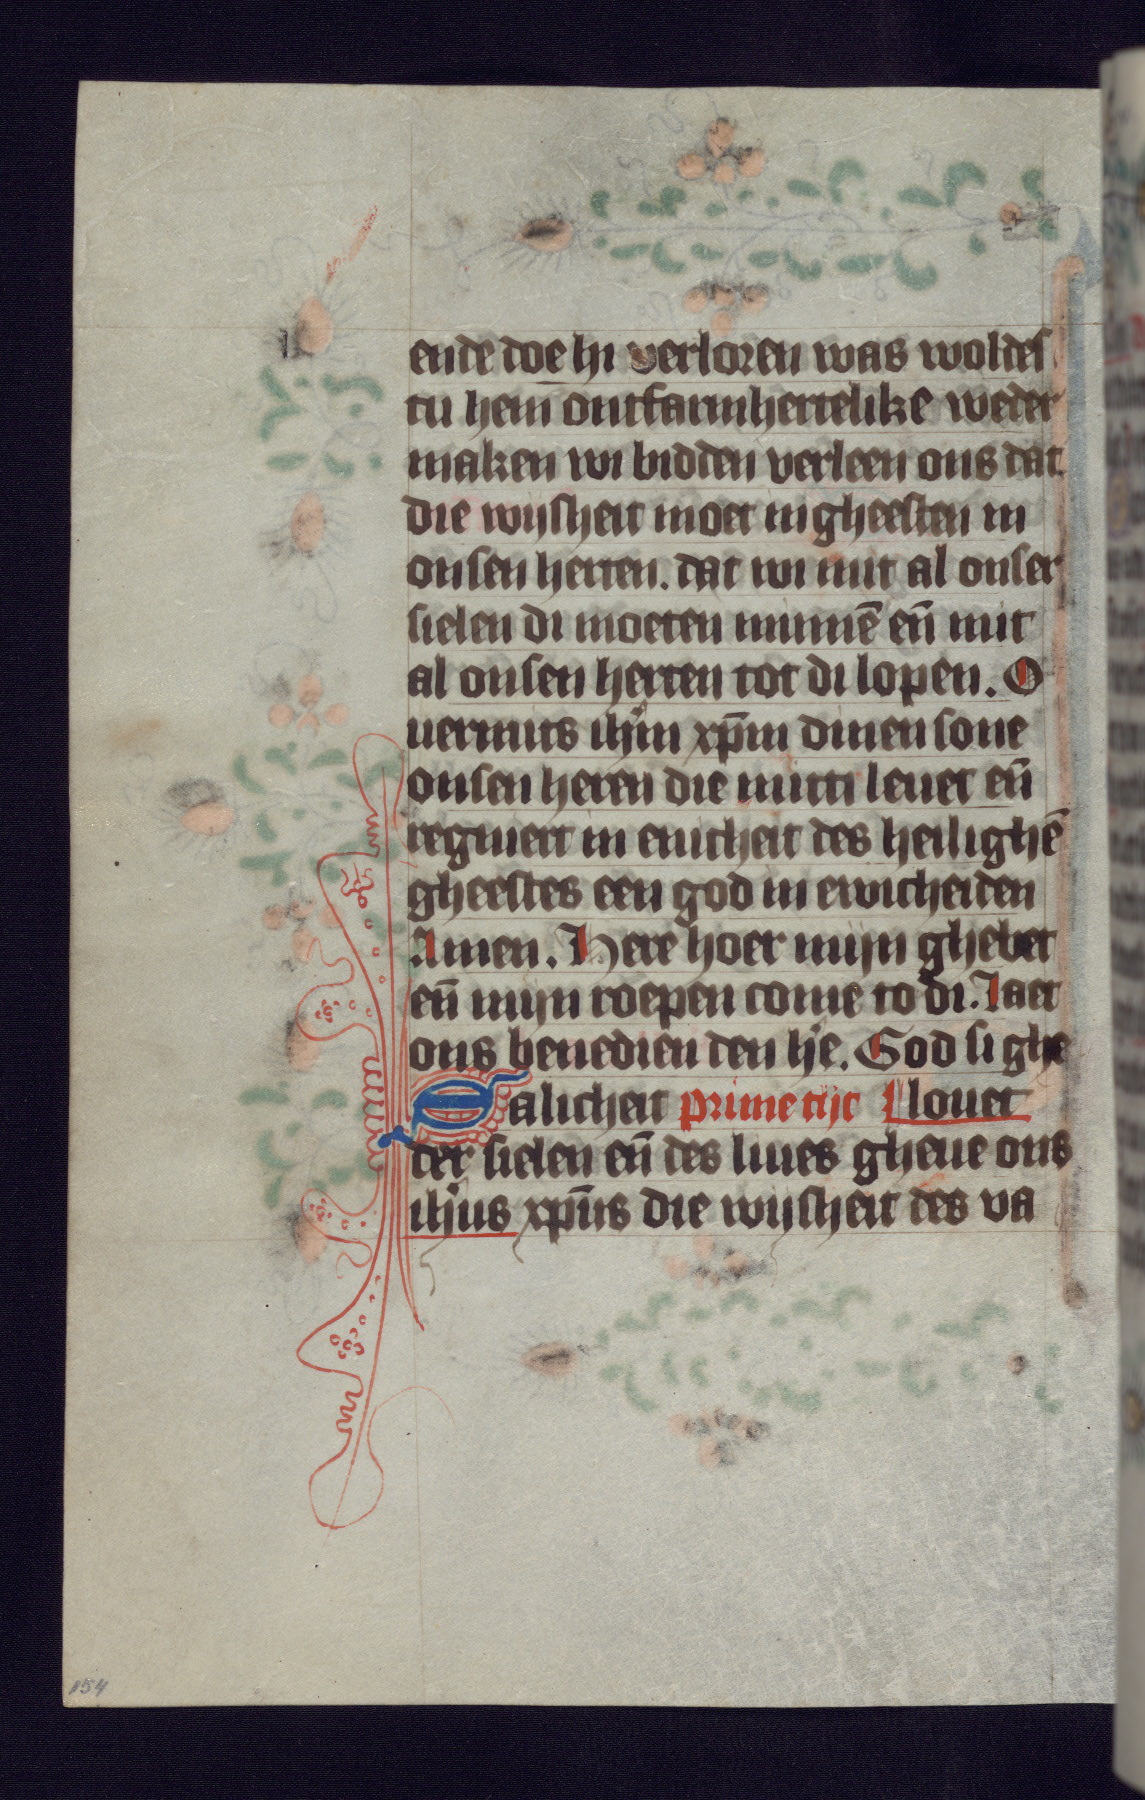 ende doe hi verloren was woldes
tu hem ontfarmhertelike weder
maken wi bidden verleen ons dat
die wijsheit moet in gheesten in
onsen herten. dat wi mit al onser
sielen di moeten minnē eñ mit
al onsen herten tot di lopen. O
uermits ihm̄ xp̄m dinen sone
onsen heren die mitti leuet eñ
regniert in enicheit des heilighē
gheestes een god in ewicheiden
Amen. Here hoer mijn ghebet
eñ mijn roepen come to di. Laet
ons benedien den hē. God si ghe
Salicheit prime tijt louet
der sielen eñ des liues gheue ons
ihūs xp̄us die wijsheit des va
154